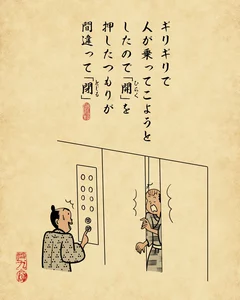 ギリギリで
人が乗ってこようと
したので「開」を
ひらく
押したつもりが
間違って「閉」
とじる